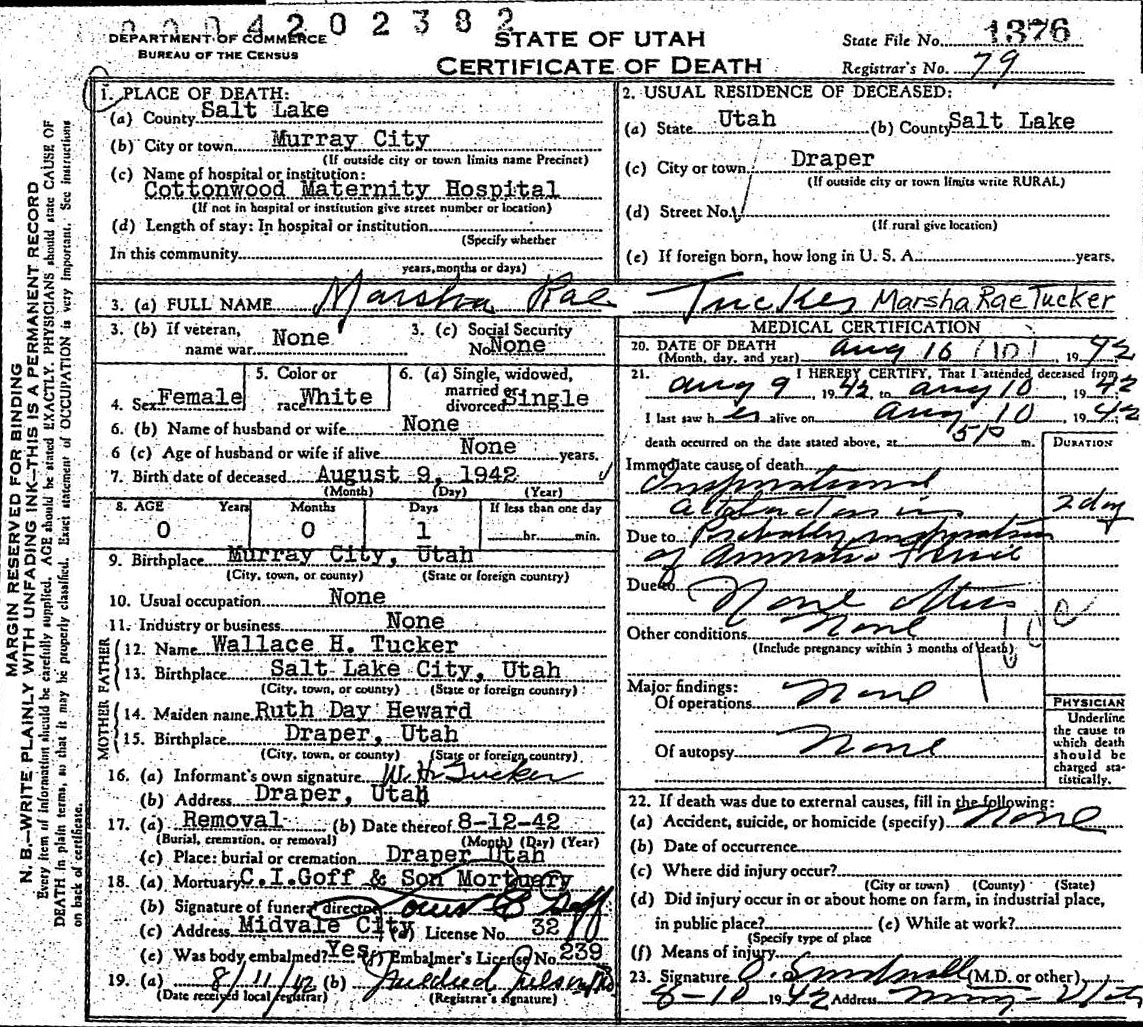 0004202382
DEPARTMENT OF COMMERCE
BUREAU OF THE CENSUS
STATE OF UTAH
CERTIFICATE OF DEATH
State File No. 1376
Registrar's No. 79
MARGIN RESERVED FOR BINDING
N. B.—WRITE PLAINLY WITH UNFADING INK—THIS IS A PERMANENT RECORD
Every item of information should be carefully supplied. AGE should be stated EXACTLY. PHYSICIANS should state CAUSE OF
DEATH in plain terms, so that it may be properly classified. Exact statement of OCCUPATION is very important. See instructions
on back of certificate.
1. PLACE OF DEATH:
(a) County Salt Lake
(b) City or town Murray City
(If outside city or town limits name Precinct)
(c) Name of hospital or institution:
Cottonwood Maternity Hospital
(If not in hospital or institution give street number or location)
(d) Length of stay: In hospital or institution
(Specify whether
In this community
years, months or days)
2. USUAL RESIDENCE OF DECEASED:
(a) State Utah (b) County Salt Lake
(c) City or town Draper
(If outside city or town limits write RURAL)
(d) Street No.
(If rural give location)
(e) If foreign born, how long in U. S. A. years.
3. (a) FULL NAME Marsha Rae Tucker Marsha Rae Tucker
3. (b) If veteran,
name war None
3. (c) Social Security
No None
4. Sex Female
5. Color or
race White
6. (a) Single, widowed,
married
divorced Single
6. (b) Name of husband or wife None
6 (c) Age of husband or wife if alive None years.
7. Birth date of deceased August 9, 1942
(Month) (Day) (Year)
8. AGE Years Months Days If less than one day
0 0 1 hr. min.
9. Birthplace Murray City, Utah
(City, town, or county) (State or foreign country)
10. Usual occupation None
11. Industry or business None
FATHER
12. Name Wallace H. Tucker
13. Birthplace Salt Lake City, Utah
(City, town, or county) (State or foreign country)
MOTHER
14. Maiden name Ruth Day Heward
15. Birthplace Draper, Utah
(City, town, or county) (State or foreign country)
16. (a) Informant's own signature W. H. Tucker
(b) Address Draper, Utah
17. (a) Removal (b) Date thereof 8-12-42
(Burial, cremation, or removal) (Month) (Day) (Year)
(c) Place: burial or cremation Draper Utah
18. (a) Mortuary C.I.Goff & Son Mortuary
(b) Signature of funeral director Goff
(c) Address Midvale City (d) License No. 32
(e) Was body embalmed? Yes (f) Embalmer's License No. 239
19. (a) 8/11/42 (b) Mildred
(Date received local registrar) (Registrar's signature)
MEDICAL CERTIFICATION
20. DATE OF DEATH
(Month, day, and year) Aug 10 (10) 1942
21. I HEREBY CERTIFY, That I attended deceased from
Aug 9, 1942, to Aug 10 1942
I last saw her alive on Aug 10 1942
death occurred on the date stated above, at 5 p m.
DURATION
Immediate cause of death
2 day
Due to Probably
of
Due to None
Other conditions None
(Include pregnancy within 3 months of death)
Major findings:
Of operations None
Of autopsy None
PHYSICIAN
Underline
the cause to
which death
should be
charged sta-
tistically.
22. If death was due to external causes, fill in the following:
(a) Accident, suicide, or homicide (specify) None
(b) Date of occurrence
(c) Where did injury occur?
(City or town) (County) (State)
(d) Did injury occur in or about home on farm, in industrial place,
in public place? (e) While at work?
(Specify type of place
(f) Means of injury
23. Signature (M.D. or other)
8-10 1942 Address Murray - Utah